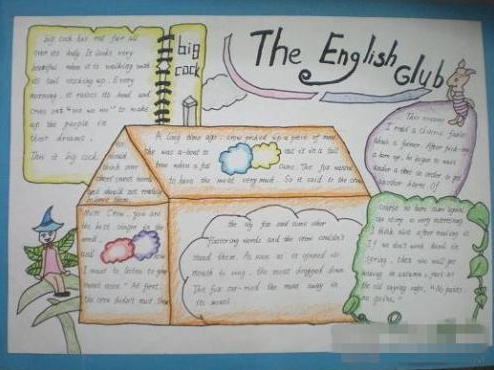 The English Glub
big
cock
big cock has red fur all
over its body. It looks very
beautiful when it is walking with
its tail sticking up. Every
morning, it raises its head and
cries out "wo wo wo" to make
up the people in
their dreams.
This is big cock
A long time ago, crow picked up a piece of meat
time when a fox
to have the meat very much. So it said to the crow
think over
sweet words
and should not easily
believe them
Miss Crow, you are
the best singer in the
and
I want to listen to your
sweet voice." At first
the crow didn't trust them
the sly fox said some other
flattering words and the crow couldn't
stand them. As soon as it opened its
mouth to sing, the meat dropped down.
The fox carried the meat away in
its mouth
This evening
I read a Chinese fable
about a farmer. After picking
a hare up, he began to wait
under a tree in order to get
another hare. Of
course no hare came again.
The story is very interesting.
I think that after reading it
If we don't work hard in
spring, then we will get
nothing in autumn, just as
the old saying says, "No pains
no gains."